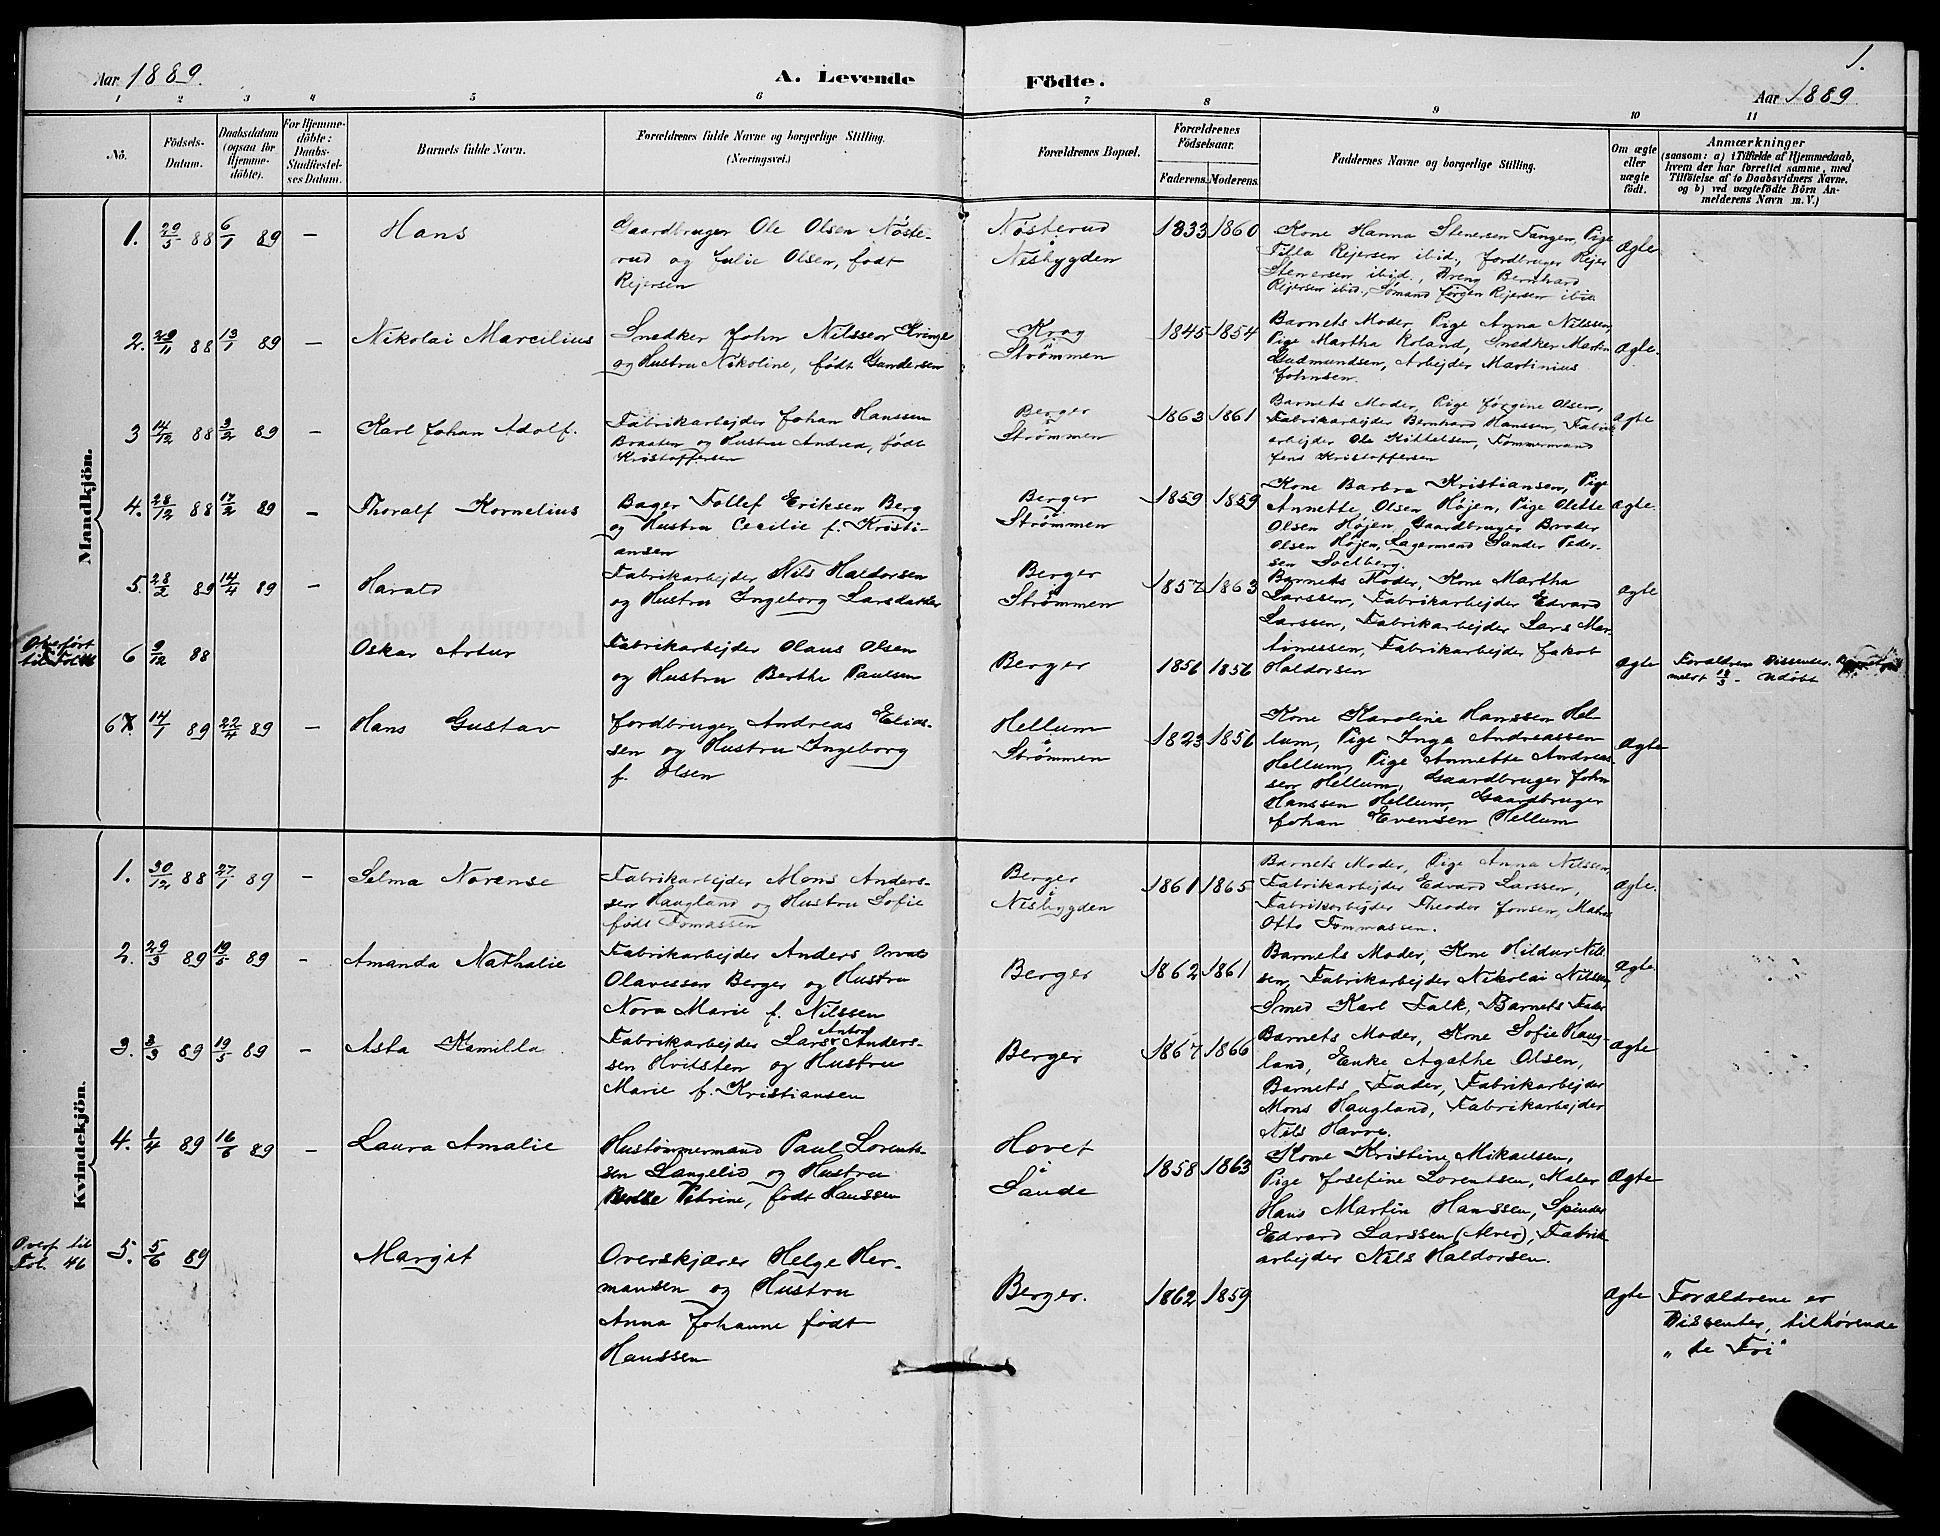 Aar 1889.
A. Levende Födte.
1.
Aar 1889
1 2 3 4 5 6 7 8 9 10 11
No.
Födsels-
Datum.
Daabsdatum
(ogsaa for
Hjemme-
döbte).
For Hjemme-
döbte:
Daabs-
Stadfæstel-
ses Datum.
Barnets fulde Navn.
Forældrenes fulde Navne og borgerlige Stilling.
(Næringsvei.)
Forældrenes Bopæl.
Forældrenes
Födselsaar.
Faderens. Moderens.
Faddernes Navne og borgerlige Stilling.
Om ægte
eller
uægte
födt.
Anmærkninger
(saasom: a) i Tilfælde af Hjemmedaab,
hvem der har forrettet samme, med
Tilföielse af to Daabsvidners Navne.
og b) ved uægtefödte Börn An-
melderens Navn m. V.)
Mandkjön.
1. 29/5 88 6/1 89 — Hans
Gaardbruger Ole Olsen Nøste-
rud og Julie Olsen, født
Rejersen
Nøsterud
i
Nesbygden
1833 1860
Kone Hanna Stenersen Tangen, Pige
Tilla Rejersen ibid., Jordbruger Rejer
Stenersen ibid., Dreng Bernhard
Rejersen ibid., Sømand Jørgen Rejersen ibid
Ægte
2. 29/11 88 13/1 89 — Nikolai Marcilius
Snedker John Nilssen Kringe
og Hustru Nikoline, født Gundersen
Krog
i
Strømmen
1845 1854
Barnets Moder, Pige Anna Nilssen,
Pige Martha Roland, Snedker Martin
Gudmundsen, Arbejder Martinius
Johnsen.
Ægte.
3 14/12 88 3/2 89 — Karl Johan Adolf.
Fabrikarbejder Johan Hanssen
Braaten og Hustru Andrea, født
Kristoffersen
Berger
i
Strømmen
1863 1861
Barnets Moder, Pige Jørgine Olsen,
Fabrikarbejder Bernhard Hanssen, Fabrik
arbejder Ole Kittelsen, Tømmermand
Jens Kristoffersen
Ægte
4. 28/12 88 17/2 89 — Thoralf Kornelius
Bager Tollef Eriksen Berg
og Hustru Cecilie f. Kristi-
ansen
Berger
i
Strømmen
1859 1859
Kone Barbra Kristiansen, Pige
Annette Olsen Højen, Pige Olette
Olsen Højen, Gaardbruger Broder
Olsen Højen, Lagermand Sander Peder-
sen Solberg.
Ægte.
5. 28/2 89 14/4 89 — Harald
Fabrikarbejder Nils Haldorsen
og Hustru Ingeborg Larsdatter
Berger
i
Strømmen
1857 1863
Barnets Moder, Kone Martha
Larssen, Fabrikarbejder Edvard
Larssen, Fabrikarbejder Lars Mar-
tinessen, Fabrikarbejder Jakob
Haldorsen
Ægte
Overført
til Fol. 46
6 9/12 88 Oskar Artur
Fabrikarbejder Olaus Olsen
og Hustru Berthe Paulsen
Berger
1856 1856
Ægte
Forældrene Dissenter.
meldt 18/3 - Udøbt
6 7. 14/1 89 22/4 89 — Hans Gustav
Jordbruger Andreas Elias-
sen og Hustru Ingeborg
f. Olsen
Hellum
i
Strømmen
1823 1856
Kone Karoline Hanssen Hel-
lum, Pige Inga Andreassen
Hellum, Pige Annette Andreas-
sen Hellum, Gaardbruger John
Hanssen Hellum, Gaardbruger
Johan Evensen Hellum
Ægte
Kvindekjön.
1. 30/12 88 27/1 89 — Selma Norense
Fabrikarbejder Mons Anders-
sen Haugland og Hustru Sofie
født Tomassen
Berger
i
Nesbygden
1861 1865
Barnets Moder, Pige Anna Nilssen,
Fabrikarbejder Edvard Larssen,
Fabrikarbejder Theodor Jonsen,
Otto Tommassen.
Ægte.
2. 29/3 89 19/5 89 — Amanda Nathalie
Fabrikarbejder Anders
Olavessen Berger og Hustru
Nora Marie f. Nilssen
Berger
1862 1861
Barnets Moder, Kone Hildur Nils-
sen, Fabrikarbejder Nikolai Nilssen,
Smed Karl Falk, Barnets Fader
Ægte.
3. 3/3 89 19/5 89 — Asta Kamilla
Fabrikarbejder Lars Anton Anders-
sen Hvitsten og Hustru
Marie f. Kristiansen
Berger
1867 1866
Barnets Moder, Kone Sofie Haug-
land, Enke Agathe Olsen,
Barnets Fader, Fabrikarbejder
Mons Haugland, Fabrikarbejder
Nils Havre.
Ægte
4. 1/4 89 16/6 89 — Laura Amalie
Hustømmermand Paul Lorent-
sen Langelid og Hustru
Petrine, født Hanssen
Hovet
i
Sande
1858 1863
Kone Kristine Mikaelsen,
Pige Josefine Lorentsen, Maler
Hans Martin Hanssen, Spinder
Edvard Larssen (Alver), Fabrik-
arbejder Nils Haldorsen.
Ægte
Overf. til
Fol. 46
5. 5/6 89 Margit
Overskjærer Helge Her-
mansen og Hustru
Anna Johanne født
Hanssen
Berger.
1862 1859
Ægte
Forældrene er
Dissenter, tilhørende
„de Fri"